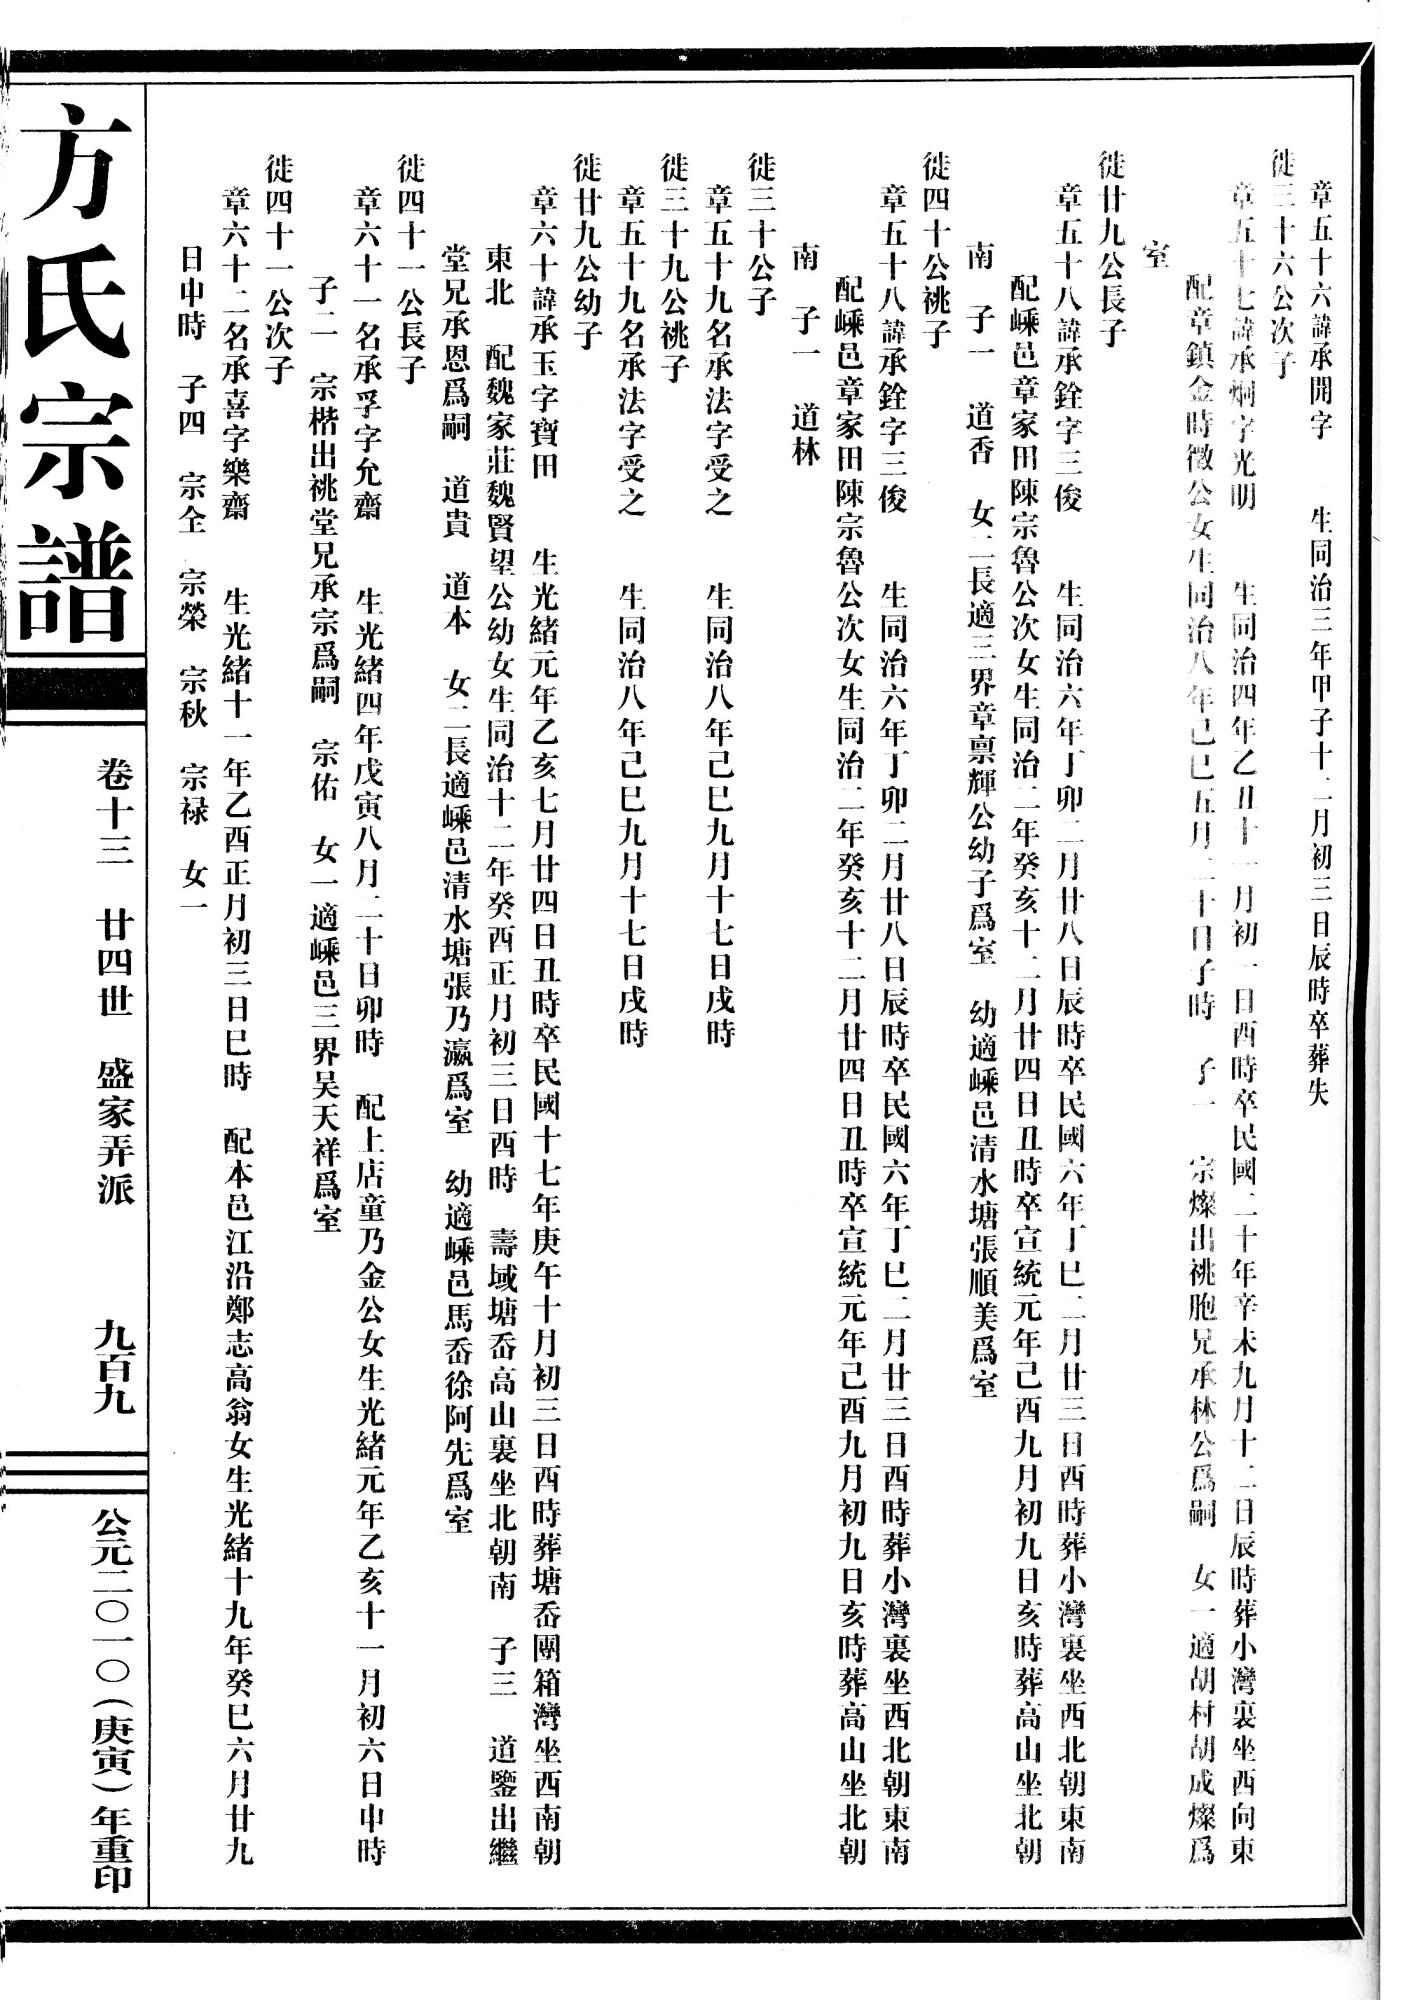 章五十六諱承開字　生同治三年甲子十二月初三日辰時卒葬失
徙三十六公次子
章五十七諱承炯字光明　生同治四年乙丑十一月初一日酉時卒民國二十年辛未九月十二日辰時葬小灣裏坐西向東
配章鎮金時徵公女生同治八年己巳五月二十日子時　子一　宗燦出祧胞兄承林公爲嗣　女一適胡村胡成燦爲
室
徙廿九公長子
章五十八諱承銓字三俊　生同治六年丁卯二月廿八日辰時卒民國六年丁巳二月廿三日酉時葬小灣裏坐西北朝東南
配嵊邑章家田陳宗魯公次女生同治二年癸亥十二月廿四日丑時卒宣統元年己酉九月初九日亥時葬高山坐北朝
南　子一　道香　女二長適三界章禀輝公幼子爲室　幼適嵊邑清水塘張順美爲室
徙四十公祧子
章五十八諱承銓字三俊　生同治六年丁卯二月廿八日辰時卒民國六年丁巳二月廿三日酉時葬小灣裏坐西北朝東南
配嵊邑章家田陳宗魯公次女生同治二年癸亥十二月廿四日丑時卒宣統元年己酉九月初九日亥時葬高山坐北朝
南　子一　道林
徙三十公子
章五十九名承法字受之　生同治八年己巳九月十七日戌時
徙三十九公祧子
章五十九名承法字受之　生同治八年己巳九月十七日戌時
徙廿九公幼子
章六十諱承玉字寶田　生光緒元年乙亥七月廿四日丑時卒民國十七年庚午十月初三日酉時葬塘岙團箱灣坐西南朝
東北　配魏家莊魏賢望公幼女生同治十二年癸酉正月初三日酉時　壽域塘岙高山裏坐北朝南　子三　道鑒出繼
堂兄承恩爲嗣　道貴　道本　女二長適嵊邑清水塘張乃瀛爲室　幼適嵊邑馬岙徐阿先爲室
徙四十一公長子
章六十一名承孚字允齋　生光緒四年戊寅八月二十日卯時　配上店童乃金公女生光緒元年乙亥十一月初六日申時
子二　宗楷出祧堂兄承宗爲嗣　宗佑　女一適嵊邑三界吴天祥爲室
徙四十一公次子
章六十二名承喜字樂齋　生光緒十一年乙酉正月初三日巳時　配本邑江沿鄭志高翁女生光緒十九年癸巳六月廿九
日申時　子四　宗全　宗榮　宗秋　宗禄　女一
方氏宗譜
卷十三　廿四世　盛家弄派　九百九
公元二〇一〇（庚寅）年重印